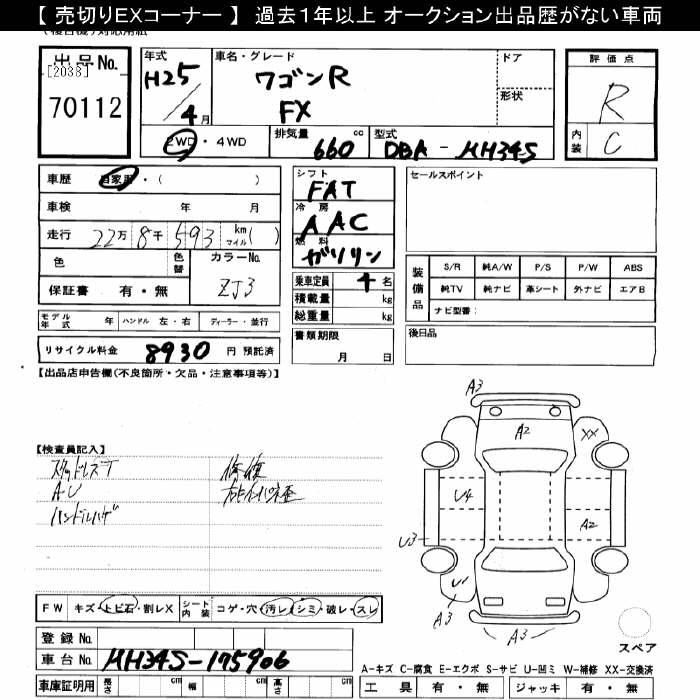 【 売切りEXコーナー 】 過去1年以上 オークション出品歴がない車両
出品No.
[2038]
70112
年式
H25/4月
車名・グレード
ワゴンR
FX
ドア
形状
評価点
R
内装
C
2WD・4WD
排気量
660 cc
型式
DBA-MH34S
車歴 自家用・( )
車検 年 月
走行 22万8千593 km マイル( )
色
色替
カラーNo.
ZJ3
保証書 有・無
シフト
FAT
冷房
AAC
燃料
ガソリン
乗車定員 4 名
積載量 kg
総重量 kg
セールスポイント
装備品
S/R 純A/W P/S P/W ABS
純TV 純ナビ 革シート 外ナビ エアB
ナビ型番:
モデル年式 年 ハンドル 左・右 ディーラー・並行
リサイクル料金 8930 円 預託済
書類期限
月 日
後日品
【出品店申告欄(不良箇所・欠品・注意事項等)】
【検査員記入】
スタッドレスT
AU
ハンドルハゲ
修復
A3
A2
XX
U4
A2
U3
U1
A3
A3
スペア
FW キズ・トビ石・割レX シート内装 コゲ・穴・汚レ・シミ・破レ・スレ
登録No.
車台No. MH34S-175906
車庫証明用 長さ cm 幅 cm 高さ cm
A-キズ C-腐食 E-エクボ S-サビ U-凹ミ W-補修 XX-交換済
工具 有・無 ジャッキ 有・無